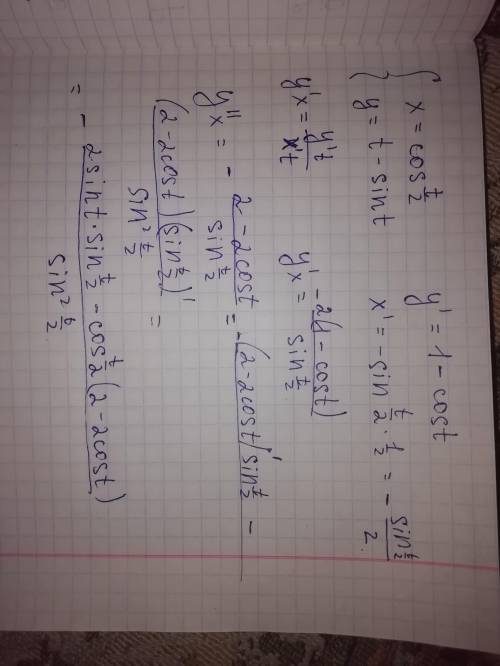 { x = cos t/2    y' = 1 - cost
{ y = t - sint    x' = -sin t/2 · 1/2 = - sin t/2 / 2
y'x = y't / x't    y'x = -2(1 - cost) / sin t/2
y''x = - 2 - 2cost / sin t/2 = - (2 - 2cost)' sin t/2 -
(2 - 2cost)(sin t/2)' / sin² t/2 =
= - 2sint · sin t/2 - cos t/2 (2 - 2cost) / sin² t/2